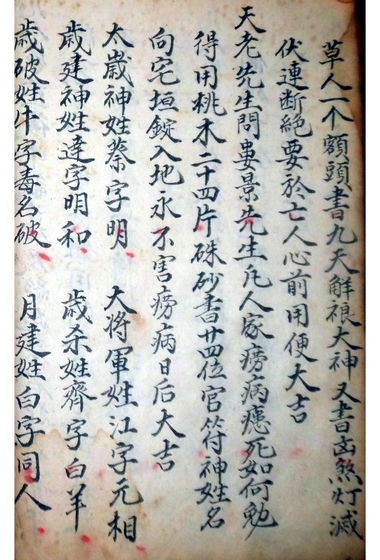 草人一个額頭書九天解裖大神又書凶煞灯滅
伏連断絕要於亡人心前用便大吉
天老先生問婁景先生凡人家癆病瘛死如何勉
得用桃木二十四片硃砂書廿四位官符神姓名
向宅垣錠入地永不害癆病日后大吉
太歲神姓蔡字明 大將軍姓江字元相
歲建神姓達字明和 歲杀姓齊字白羊
歲破姓牛字毒名破 月建姓白字同人